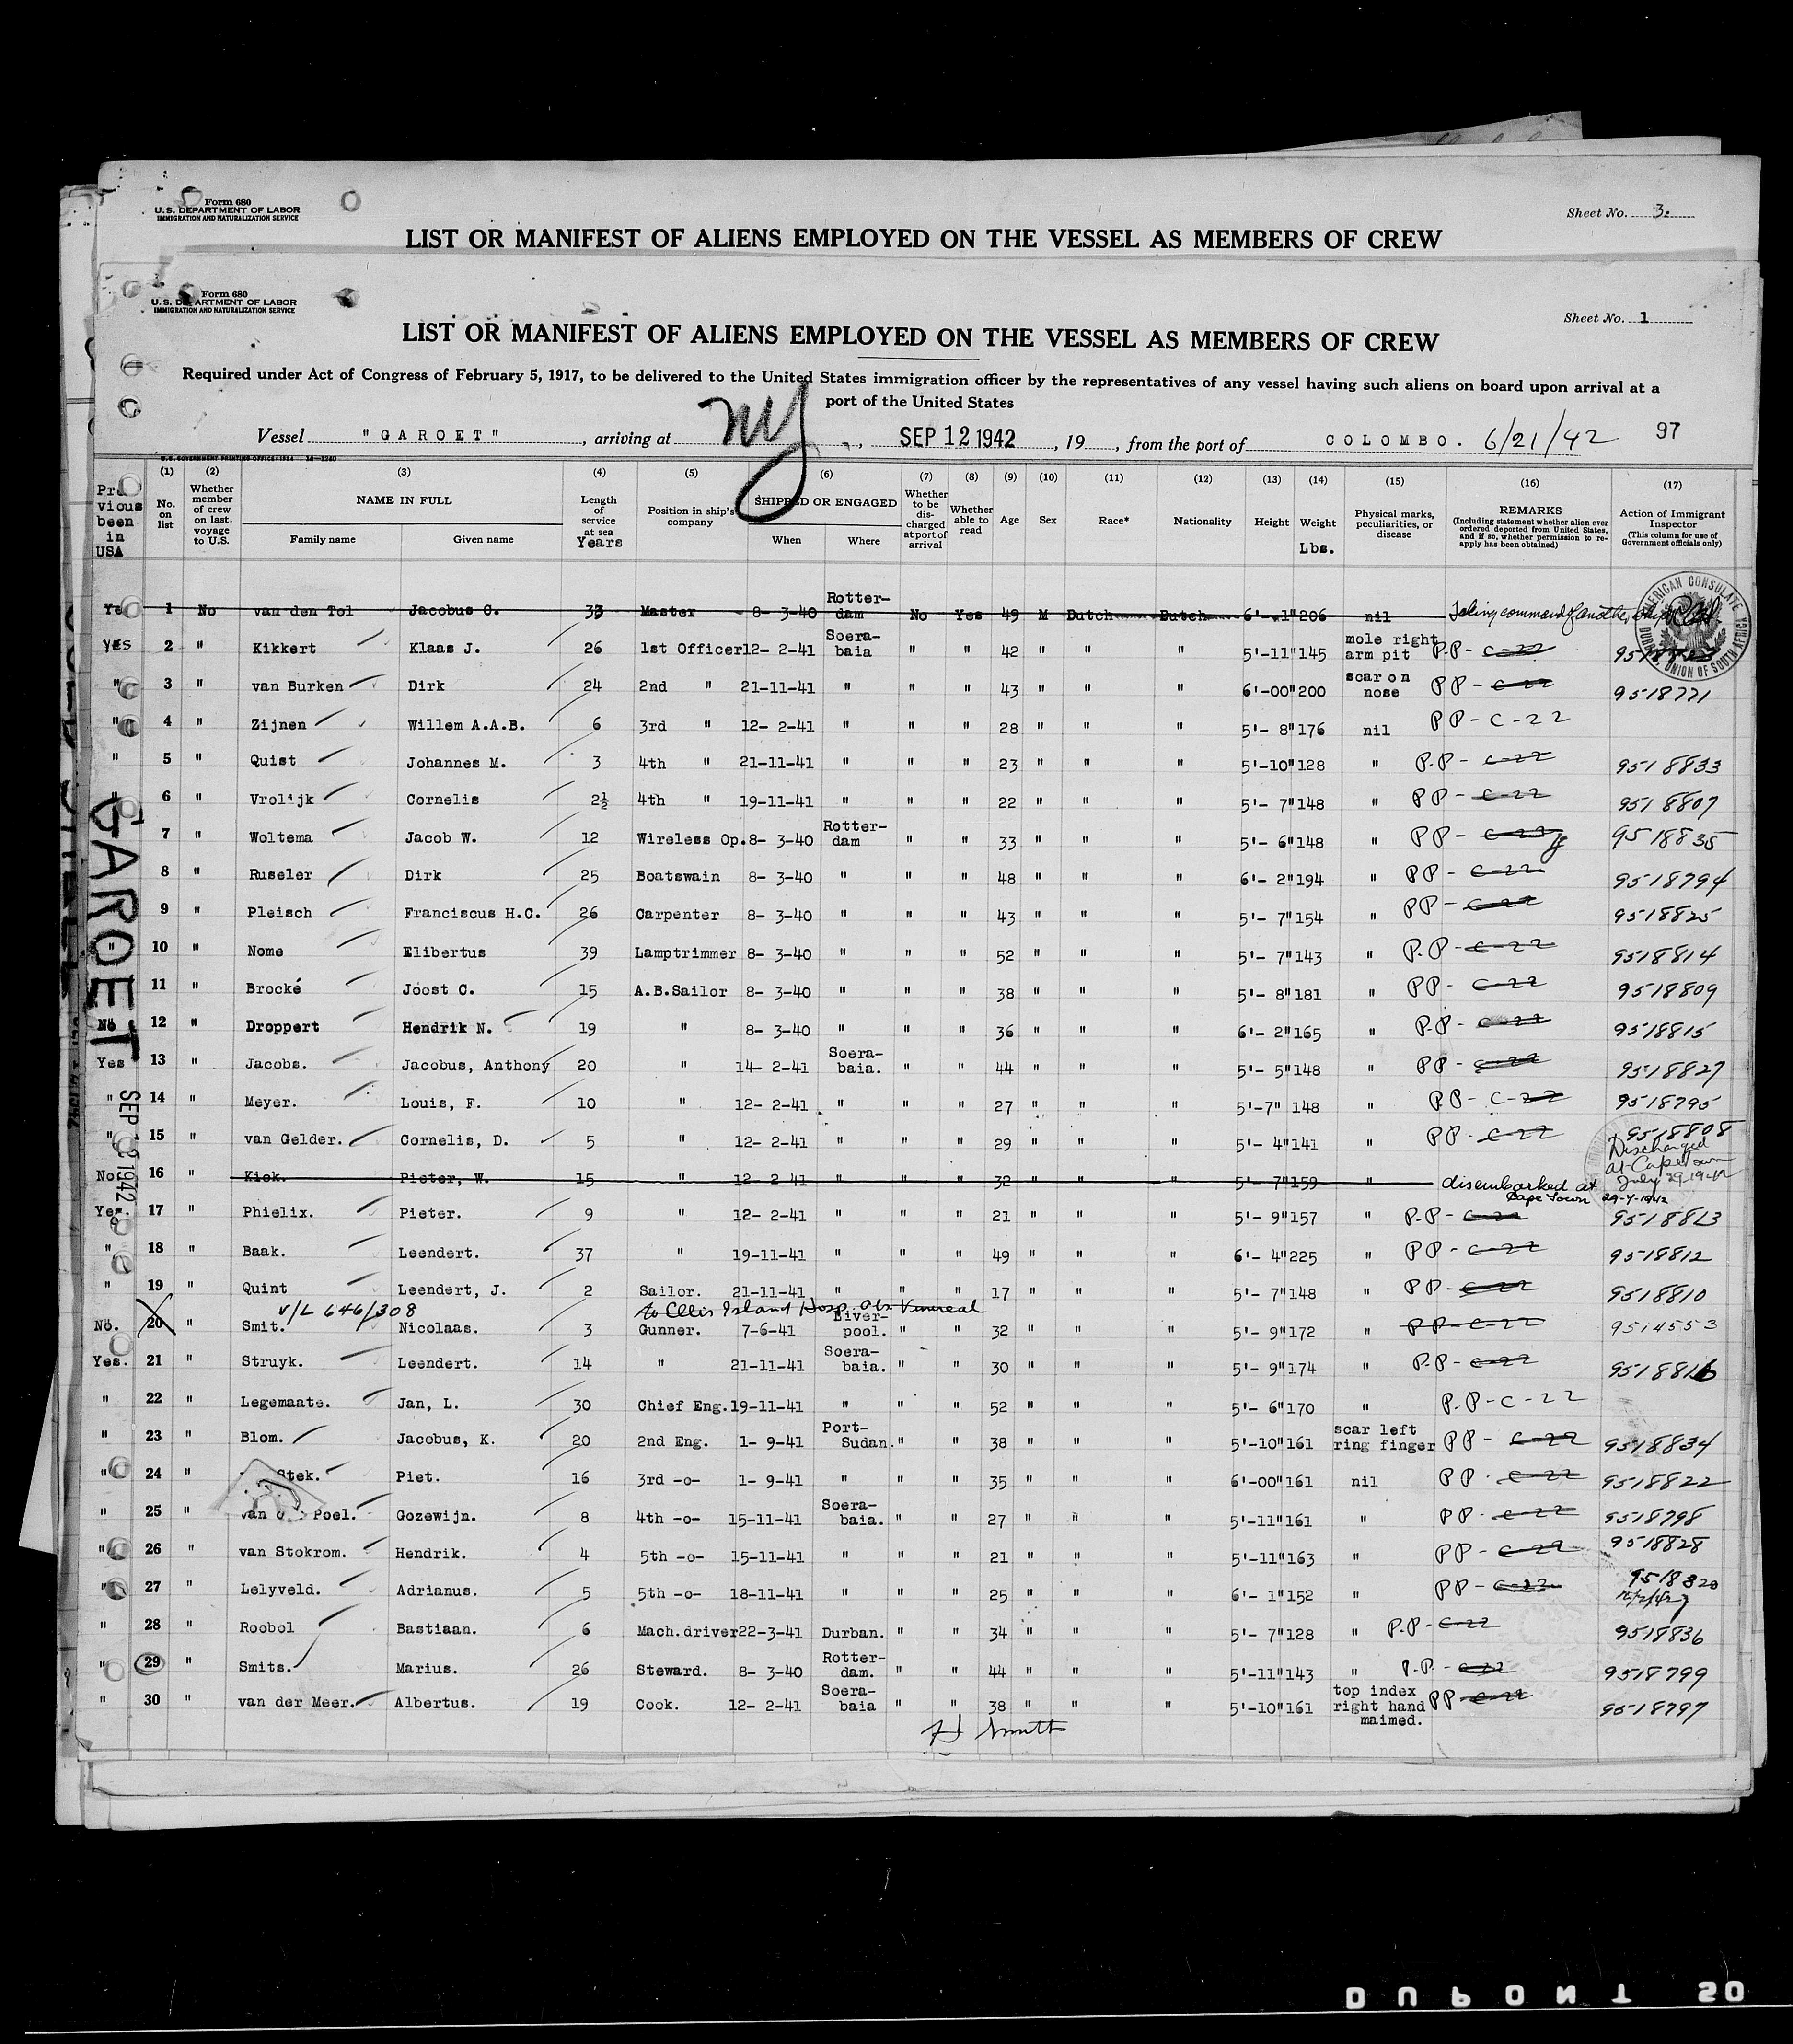 Form 680
U.S. DEPARTMENT OF LABOR
IMMIGRATION AND NATURALIZATION SERVICE
Sheet No. 3.
LIST OR MANIFEST OF ALIENS EMPLOYED ON THE VESSEL AS MEMBERS OF CREW
Form 680
U.S. DEPARTMENT OF LABOR
IMMIGRATION AND NATURALIZATION SERVICE
Sheet No. 1
LIST OR MANIFEST OF ALIENS EMPLOYED ON THE VESSEL AS MEMBERS OF CREW
Required under Act of Congress of February 5, 1917, to be delivered to the United States immigration officer by the representatives of any vessel having such aliens on board upon arrival at a
port of the United States
Vessel "GAROET", arriving at NY, SEP 12 1942, 19, from the port of COLOMBO. 6/21/42 97
(1) (2) (3) (4) (5) (6) (7) (8) (9) (10) (11) (12) (13) (14) (15) (16) (17)
Previous been in USA
No. on list
Whether member of crew on last voyage to U.S.
NAME IN FULL
Family name
Given name
Length of service at sea
Years
Position in ship's company
SHIPPED OR ENGAGED
When
Where
Whether to be discharged at port of arrival
Whether able to read
Age
Sex
Race*
Nationality
Height
Weight
Lbs.
Physical marks, peculiarities, or disease
REMARKS
(Including statement whether alien ever ordered deported from United States, and if so, whether permission to re-apply has been obtained)
Action of Immigrant Inspector
(This column for use of Government officials only)
AMERICAN CONSULATE
DURBAN, UNION OF SOUTH AFRICA
Yes 1 No van den Tol Jacobus C. 33 Master 8- 3-40 Rotter-dam No Yes 49 M Dutch Dutch 6'-.1" 206 nil Taking command of another ship
Yes 2 " Kikkert Klaas J. 26 1st Officer 12- 2-41 Soera-baia " " 42 " " " 5'-11" 145 mole right arm pit P.P - C-22
" 3 " van Burken Dirk 24 2nd " 21-11-41 " " " 43 " " " 6'-00" 200 scar on nose PP - C-22 9518771
" 4 " Zijnen Willem A.A.B. 6 3rd " 12- 2-41 " " " 28 " " " 5'- 8" 176 nil PP - C-22
" 5 " Quist Johannes M. 3 4th " 21-11-41 " " " 23 " " " 5'-10" 128 " P.P - C-22 9518833
" 6 " Vrolijk Cornelis 2½ 4th " 19-11-41 " " " 22 " " " 5'- 7" 148 " PP - C-22 9518807
" 7 " Woltema Jacob W. 12 Wireless Op. 8- 3-40 Rotter-dam " " 33 " " " 5'- 6" 148 " PP - C-22 9518835
" 8 " Ruseler Dirk 25 Boatswain 8- 3-40 " " " 48 " " " 6'- 2" 194 " PP - C-22 9518794
" 9 " Pleisch Franciscus H.C. 26 Carpenter 8- 3-40 " " " 43 " " " 5'- 7" 154 " PP - C-22 9518825
" 10 " Nome Elibertus 39 Lamptrimmer 8- 3-40 " " " 52 " " " 5'- 7" 143 " P.P - C-22 9518814
" 11 " Brocké Joost C. 15 A.B.Sailor 8- 3-40 " " " 38 " " " 5'- 8" 181 " PP - C-22 9518809
No 12 " Droppert Hendrik N. 19 " 8- 3-40 " " " 36 " " " 6'- 2" 165 " P.P - C-22 9518815
Yes 13 " Jacobs. Jacobus, Anthony 20 " 14- 2-41 Soera-baia. " " 44 " " " 5'- 5" 148 " PP - C-22 9518827
" 14 " Meyer. Louis, F. 10 " 12- 2-41 " " " 27 " " " 5'-7" 148 " PP - C-22 9518795
" 15 " van Gelder. Cornelis, D. 5 " 12- 2-41 " " " 29 " " " 5'- 4" 141 " PP - C-22 9518808
Discharged at Capetown July 29-1942
No 16 " Kiok. Pieter, W. 15 " 12- 2 41 " " " 32 " " " 5'- 7" 159 " disembarked at Cape Town 29-7-1942
Yes. 17 " Phielix. Pieter. 9 " 12- 2-41 " " " 21 " " " 5'- 9" 157 " P.P - C-22 9518813
" 18 " Baak. Leendert. 37 " 19-11-41 " " " 49 " " " 6'- 4" 225 " PP - C-22 9518812
" 19 " Quint Leendert, J. 2 Sailor. 21-11-41 " " " 17 " " " 5'- 7" 148 " PP - C-22 9518810
V/L 646/308 to Ellis Island Hosp. obs. Venereal
No. 20 " Smit. Nicolaas. 3 Gunner. 7-6-41 Liver-pool. " " 32 " " " 5'- 9" 172 " PP - C-22 9514553
Yes. 21 " Struyk. Leendert. 14 " 21-11-41 Soera-baia. " " 30 " " " 5'- 9" 174 " P.P - C-22 9518816
" 22 " Legemaate. Jan, L. 30 Chief Eng. 19-11-41 " " " 52 " " " 5'- 6" 170 " P.P - C-22
" 23 " Blom. Jacobus, K. 20 2nd Eng. 1- 9-41 Port-Sudan. " " 38 " " " 5'-10" 161 scar left ring finger PP - C-22 9518834
" 24 " Stek. Piet. 16 3rd -o- 1- 9-41 " " " 35 " " " 6'-00" 161 nil PP - C-22 9518822
" 25 " van Poel. Gozewijn. 8 4th -o- 15-11-41 Soera-baia. " " 27 " " " 5'-11" 161 " PP - C-22 9518798
" 26 " van Stokrom. Hendrik. 4 5th -o- 15-11-41 " " " 21 " " " 5'-11" 163 " PP - C-22 9518828
" 27 " Lelyveld. Adrianus. 5 5th -o- 18-11-41 " " " 25 " " " 6'- 1" 152 " PP - C-22 9518820
" 28 " Roobol Bastiaan. 6 Mach.driver 22-3-41 Durban. " " 34 " " " 5'- 7" 128 " P.P - C-22 9518836
" 29 " Smits. Marius. 26 Steward. 8- 3-40 Rotter-dam. " " 44 " " " 5'-11" 143 " P.P. - C-22 9518799
" 30 " van der Meer. Albertus. 19 Cook. 12- 2-41 Soera-baia " " 38 " " " 5'-10" 161 top index right hand maimed. PP - C-22 9518797
GAROET
SEP 12 1942
DUPONT 50